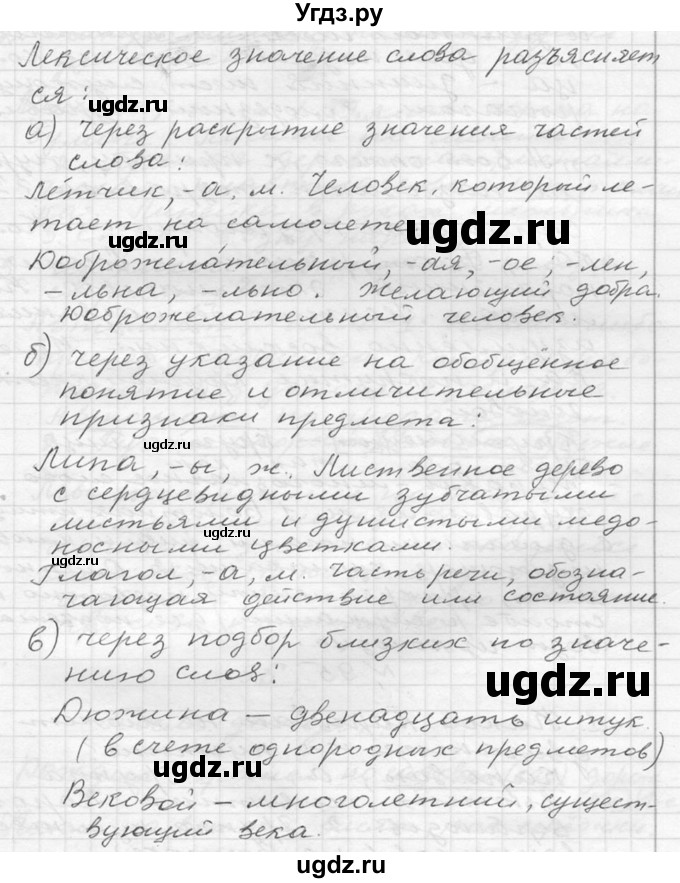 Угдз.ру
Лексическое значение слова разъясняет
ся:
а) через раскрытие значения частей
слова:
Лётчик, -а, м. Человек, который ле-
тает на самолете.
Доброжела́тельный, -ая, -ое; -лен,
-льна, -льно. Желающий добра.
Доброжелательный человек.
б) через указание на обобщённое
понятие и отличительные
признаки предмета:
Липа, -ы, ж. Лиственное дерево
с сердцевидными зубчатыми
листьями и душистыми медо-
носными цветками.
Глагол, -а, м. Часть речи, обозна-
чающая действие или состояние.
в) через подбор близких по значе-
нию слов:
Дюжина – двенадцать штук
(в счете однородных предметов)
Вековой – многолетний, сущест-
вующий века.
ugdz.ru
ugdz.ru
ugdz.ru
ugdz.ru
ugdz.ru
ugdz.ru
ugdz.ru
ugdz.ru
ugdz.ru
ugdz.ru